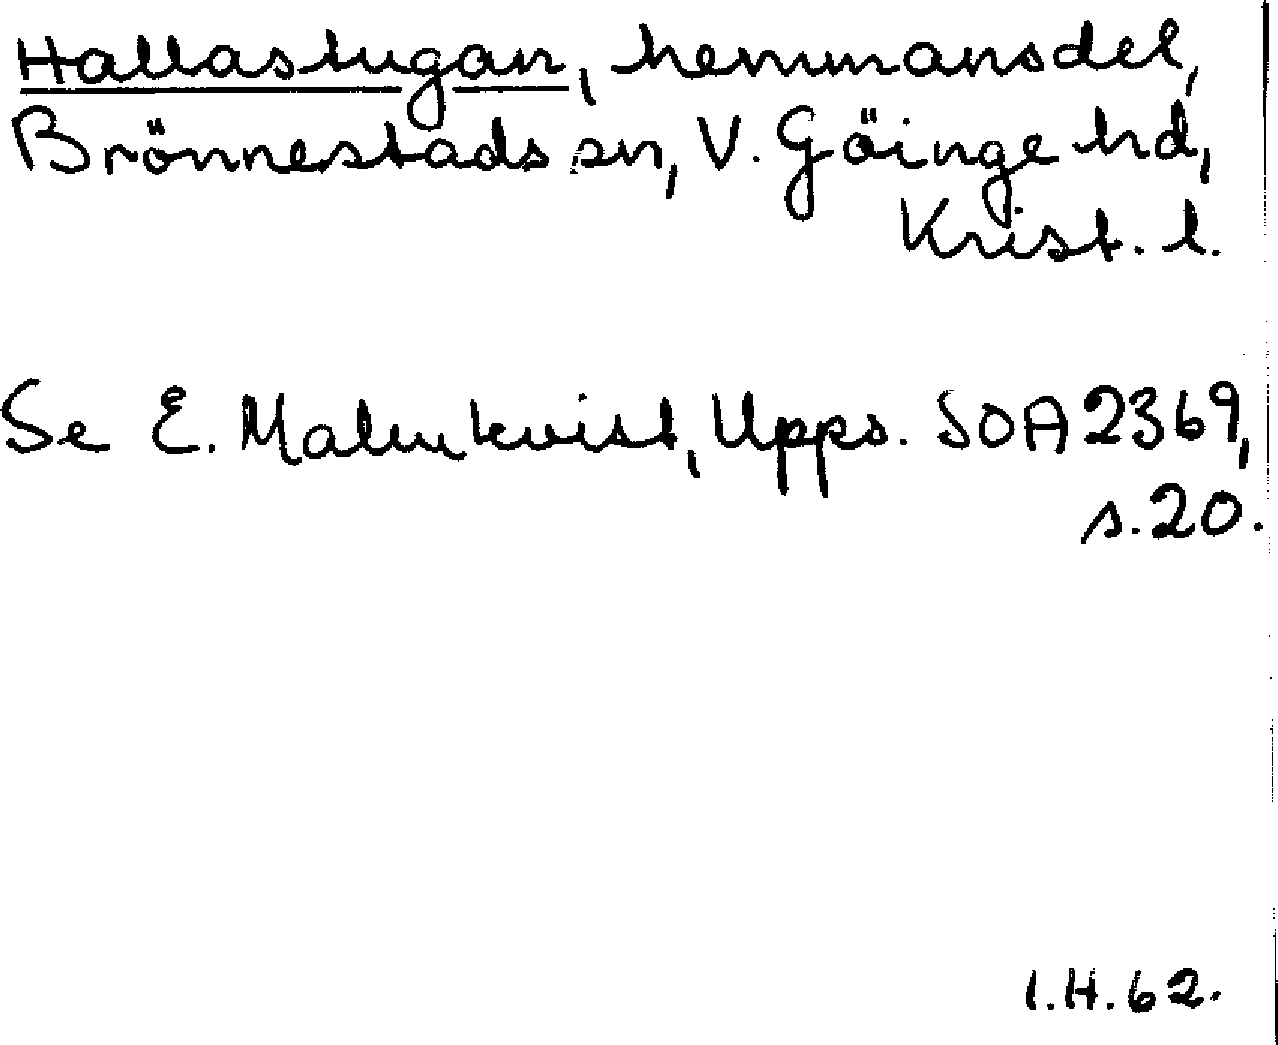 Hallastugan, hemmansdel,
Brönnestads sn, V. Göinge hd,
Krist. l.
Se E. Malmkvist, Upps. SOA 2369,
s. 20.
I.H. 62.